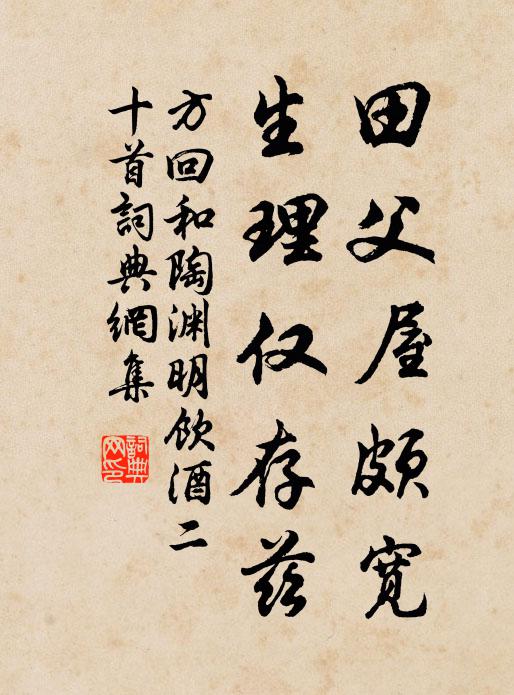 田父屋頗寬
生理仅存兹
方回和陶渊明饮酒二
十首詞典網集
詞典
网印